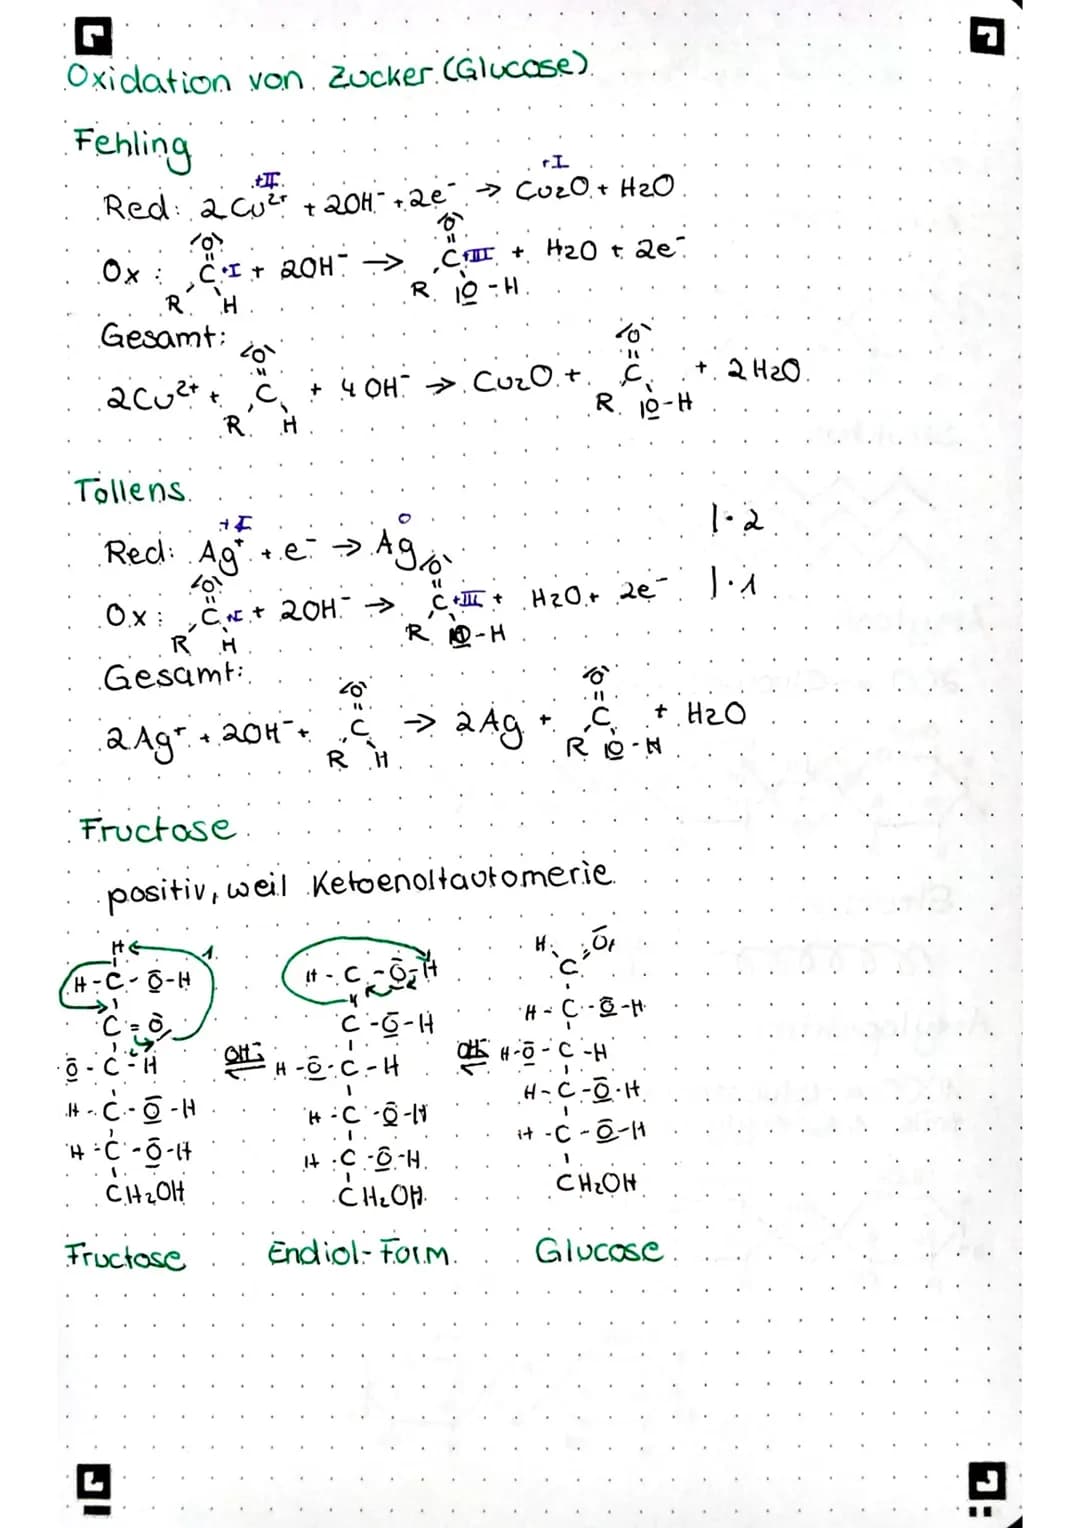 Oxidation von Zucker (Glucose)
Fehling
+II +I
Red: 2Cu²⁺ + 2OH⁻ + 2e⁻ → Cu2O + H2O
Ox: R-C(=O)-H +I + 2OH⁻ → R-C(=O)-O-H +III + H2O + 2e⁻
Gesamt:
2Cu²⁺ + R-C(=O)-H + 4OH⁻ → Cu2O + R-C(=O)-O-H + 2H2O
Tollens
+I 0
Red: Ag⁺ + e⁻ → Ag |·2
Ox: R-C(=O)-H +I + 2OH⁻ → R-C(=O)-O-H +III + H2O + 2e⁻ |·1
Gesamt:
2Ag⁺ + 2OH⁻ + R-C(=O)-H → 2Ag + R-C(=O)-O-H + H2O
Fructose
positiv, weil Ketoenoltautomerie
H 1. H O
H-C-O-H H-C-O-H C
C=O C-O-H H-C-O-H
O-C-H OH⁻ H-O-C-H OH⁻ H-O-C-H
H-C-O-H H-C-O-H H-C-O-H
H-C-O-H H-C-O-H H-C-O-H
CH2OH CH2OH CH2OH
Fructose Endiol-Form Glucose